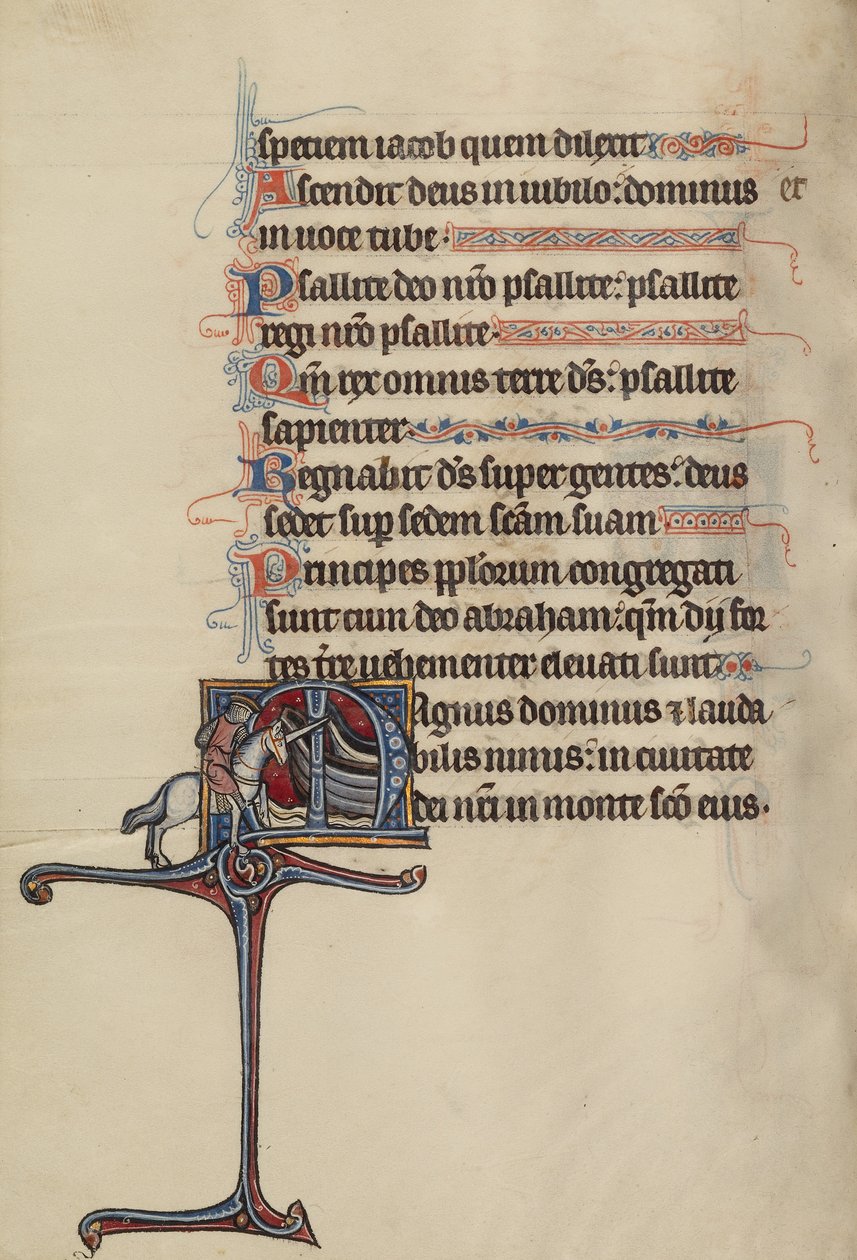 speciem iacob quem dilexit
Ascendit deus in iubilo: dominus et
in uoce tube.
Psallite deo nr̄o psallite: psallite
regi nr̄o psallite.
Qm̄ rex omnis terre ds̄: psallite
sapienter.
Regnabit ds̄ super gentes: deus
sedet suꝑ sedem sc̄am suam
Principes ppl̄orum congregati
sunt cum deo abraham: qm̄ dij for
tes tr̄e uehementer eleuati sunt
Magnus dominus ⁊ lauda
bilis nimis: in ciuitate
dei nr̄i in monte sc̄o eius.